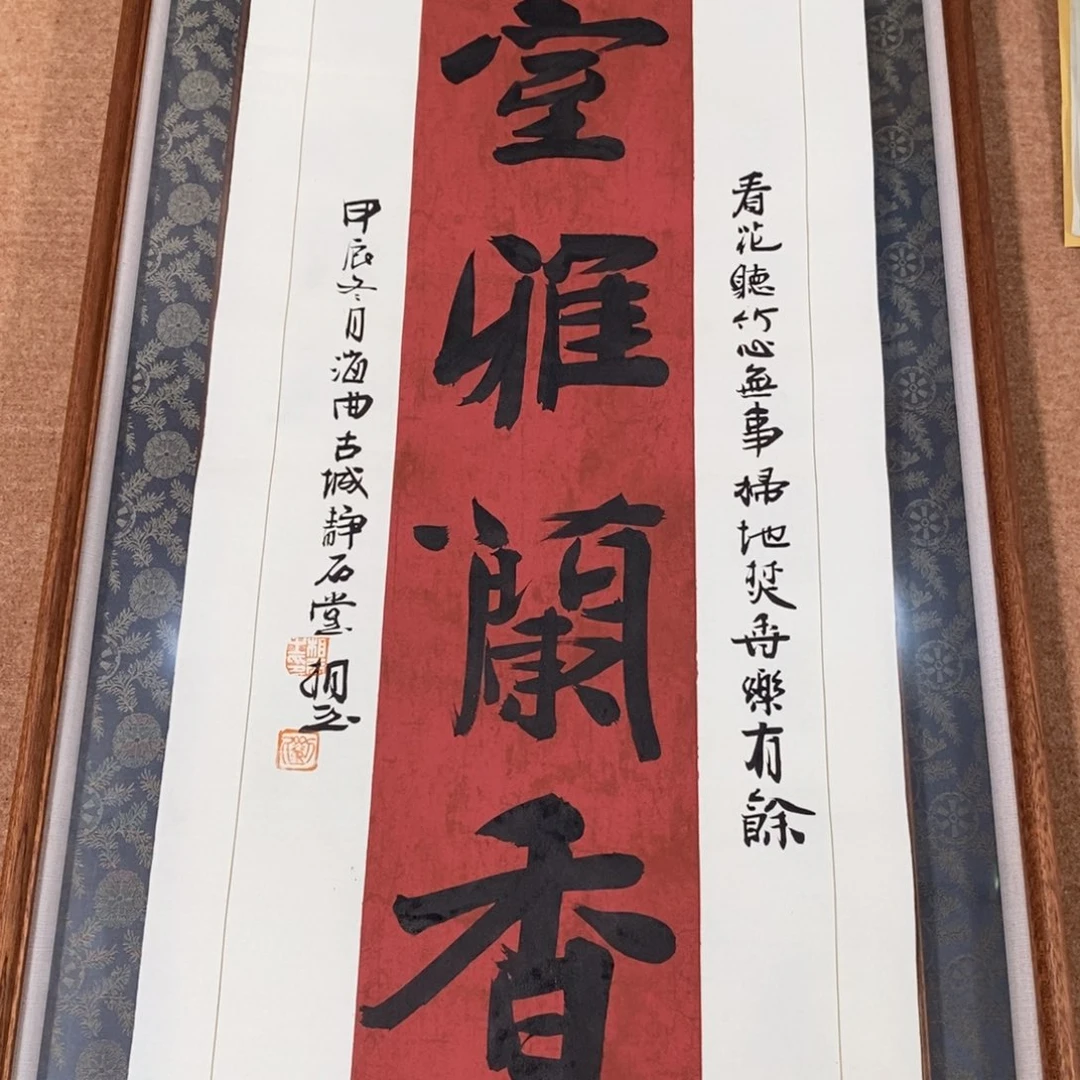 看花聽竹心無事掃地焚香樂有餘
室雅蘭香
甲辰冬月海曲古城靜石堂